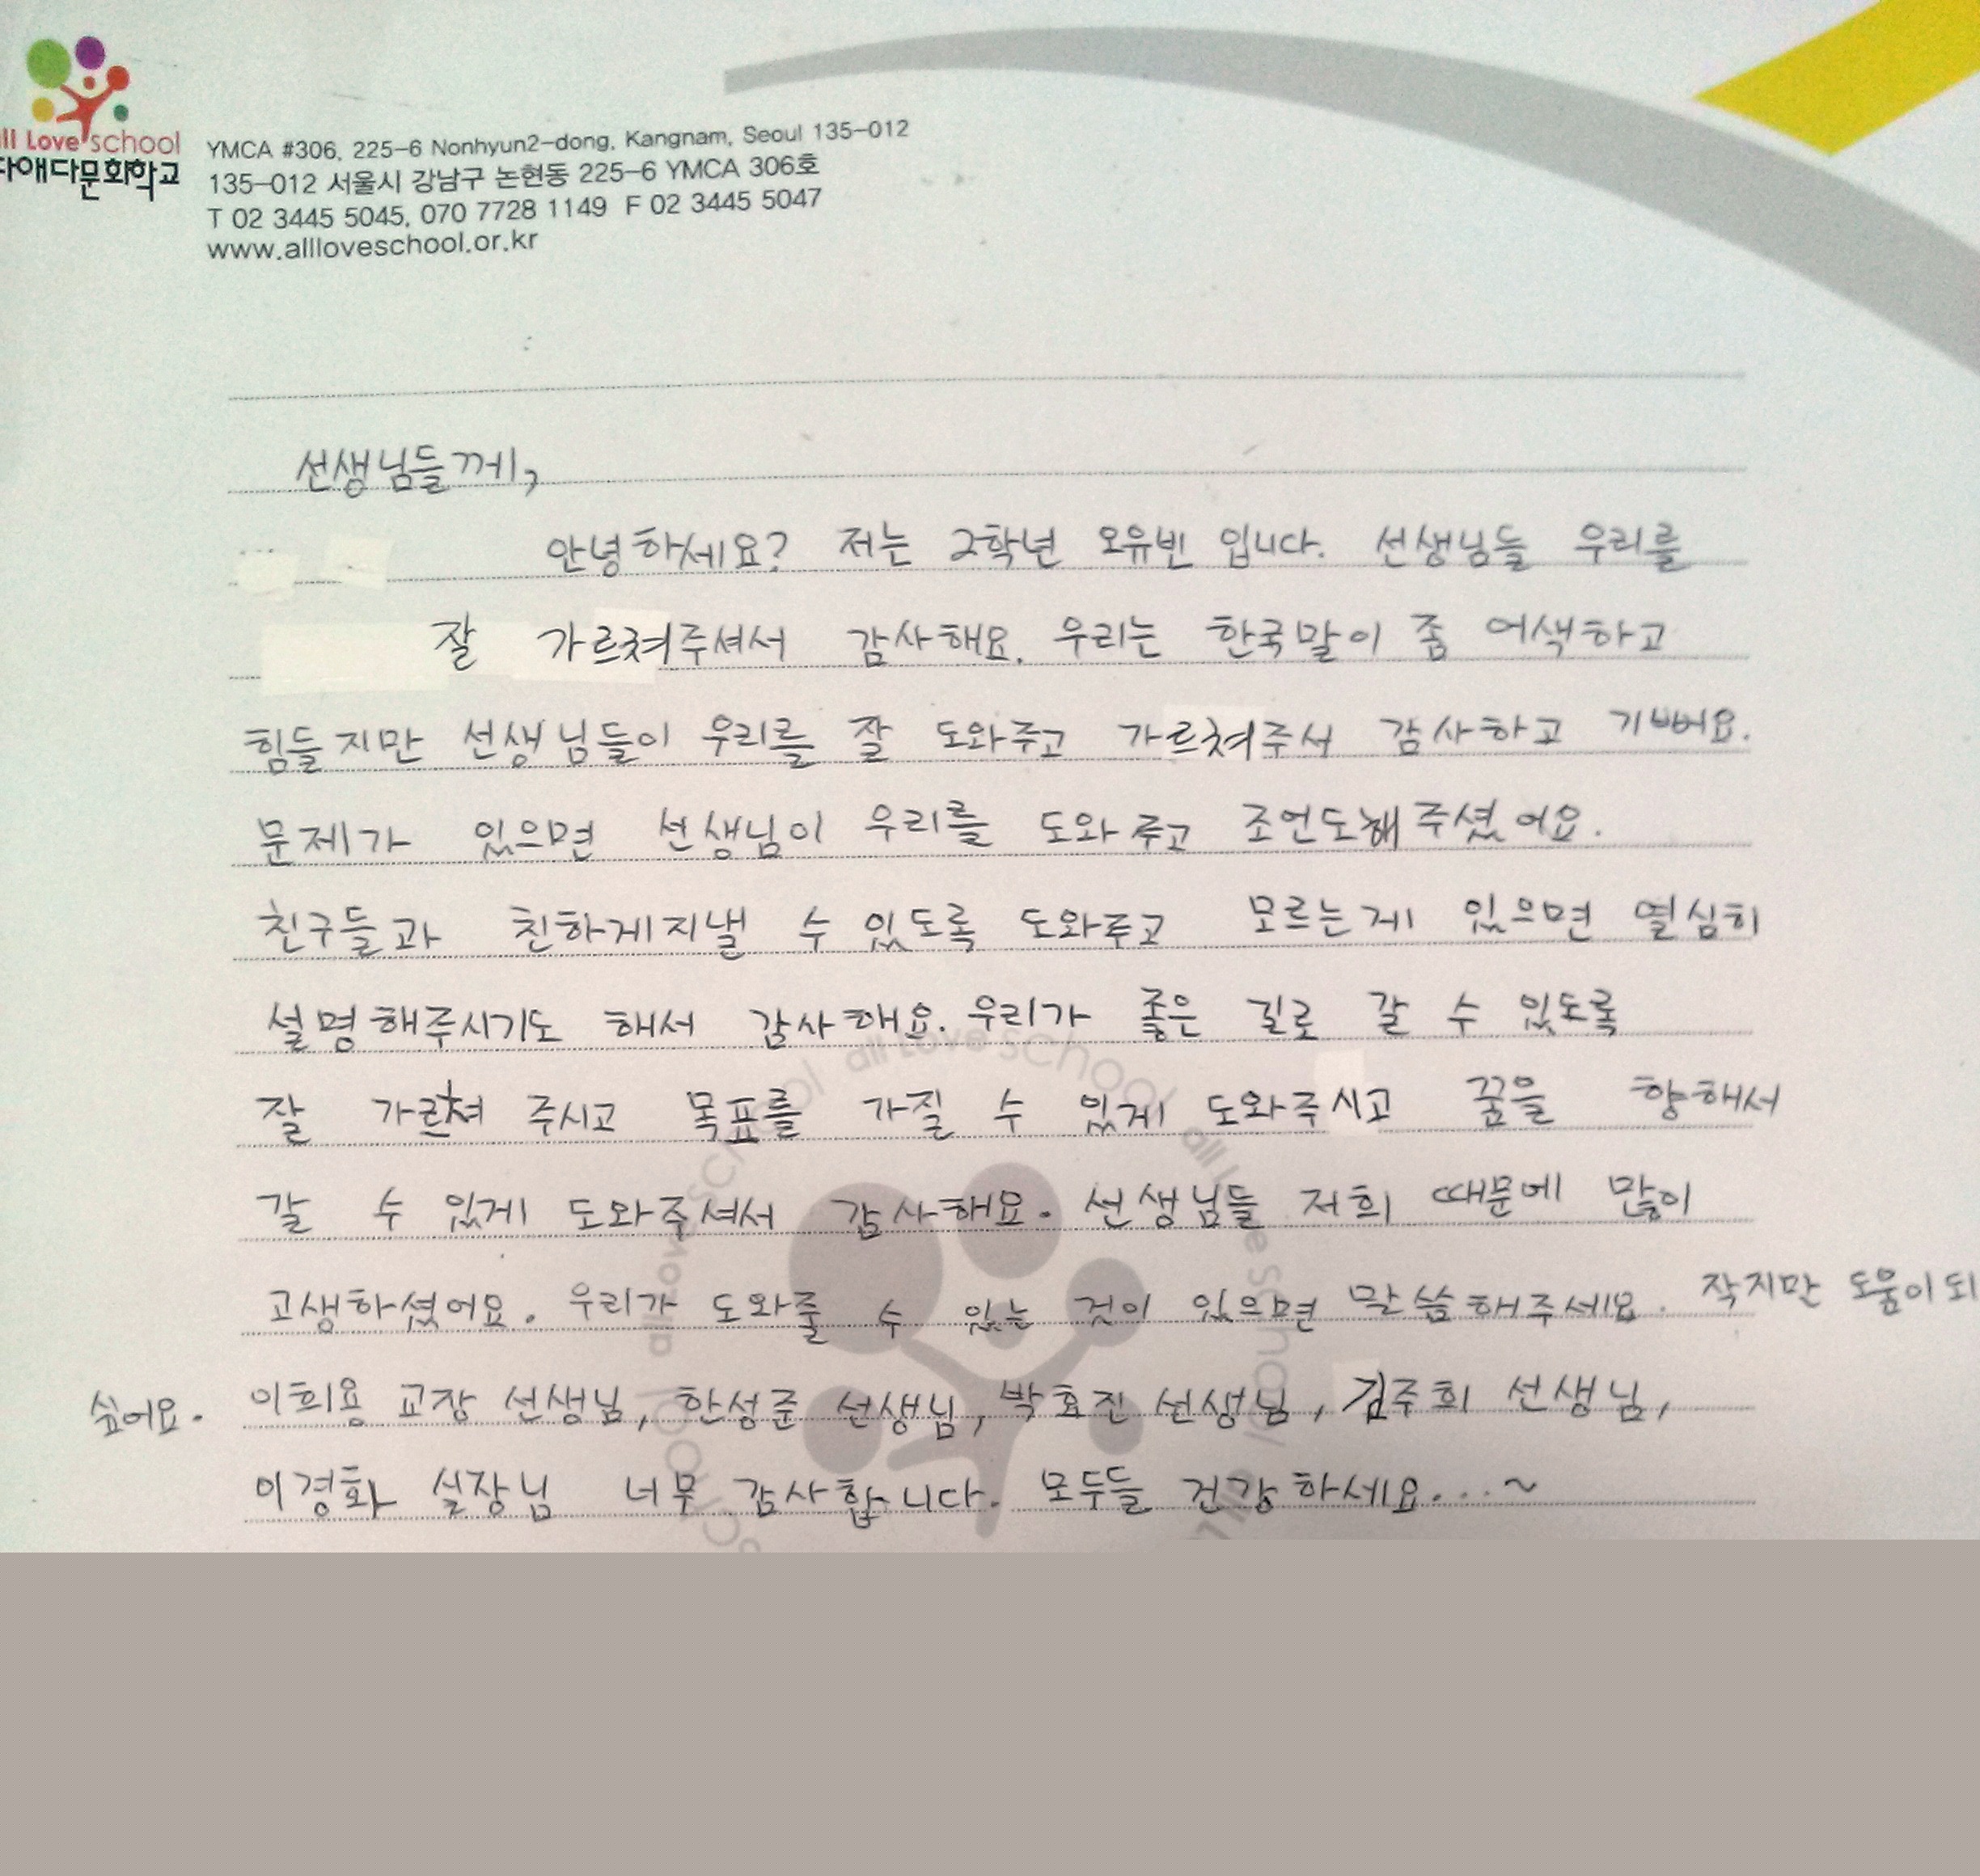 all Love school
다애다문화학교
YMCA #306, 225-6 Nonhyun2-dong, Kangnam, Seoul 135-012
135-012 서울시 강남구 논현동 225-6 YMCA 306호
T 02 3445 5045, 070 7728 1149 F 02 3445 5047
www.allloveschool.or.kr
선생님들께,
안녕하세요? 저는 2학년 오유빈 입니다. 선생님들 우리를
잘 가르쳐주셔서 감사해요. 우리는 한국말이 좀 어색하고
힘들지만 선생님들이 우리를 잘 도와주고 가르쳐주서 감사하고 기뻐요.
문제가 있으면 선생님이 우리를 도와주고 조언도해주셨어요.
친구들과 친하게지낼 수 있도록 도와주고 모르는게 있으면 열심히
설명해주시기도 해서 감사해요. 우리가 좋은 길로 갈 수 있도록
잘 가르쳐 주시고 목표를 가질 수 있게 도와주시고 꿈을 향해서
갈 수 있게 도와주셔서 감사해요. 선생님들 저희 때문에 많이
고생하셨어요. 우리가 도와줄 수 있는 것이 있으면 말씀해주세요. 작지만 도움이되
싶어요. 이희용 교장 선생님, 한성준 선생님, 박효진 선생님, 김주희 선생님,
이경화 실장님 너무 감사합니다. 모두들 건강하세요...~
all Love school all Love school all Love school